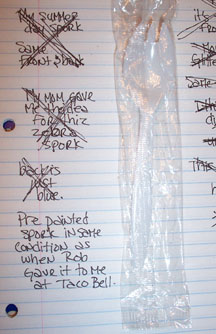 My summer
day spork
Same
front & back
My mom gave
me the idea
for thiz
zebra
spork
back is
just
blue.
Pre painted
spork in same
condition as
when Rob
gave it to me
at Taco Bell.
it's